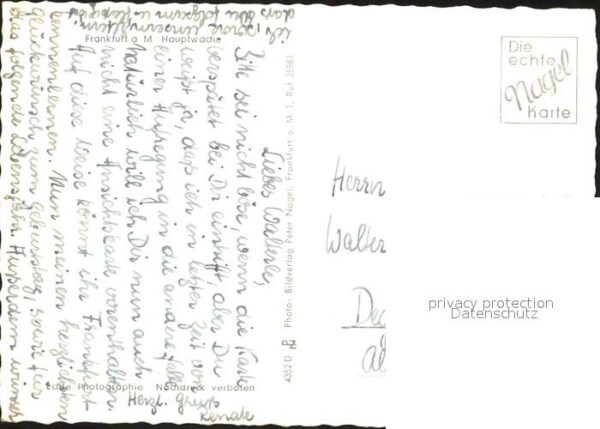 Frankfurt a. M. Hauptwache
Liebes Walterle,
Bitte sei nicht böse, wenn die Karte
verspätet bei Dir eintrifft, aber Du
weißt ja, daß ich in letzter Zeit von
einer Aufregung in die andere falle.
Natürlich will ich Dir nun auch
nicht eine Ansichtskarte vorenthalten.
Auf diese Weise könnt ihr Frankfurt
kennenlernen. Nun meinen herzlichsten
Glückwunsch zum Geburtstag, sowie für
das folgende Lebensjahr. Außerdem wünsche
ich,
daß du folgsam u. fleißig
Herzl. Gruß
Renate
Echte Photographie Nachdruck verboten
4352 D Photo: Bildverlag Peter Nagel, Frankfurt a. M. 1, Ruf 35981
Die
echte
Nagel
Karte
Herrn
Walter
privacy protection
Datenschutz